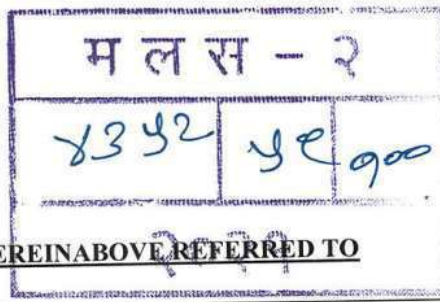 म ल स - २
४३५२ ५९ १००
EREINABOVE REFERRED TO